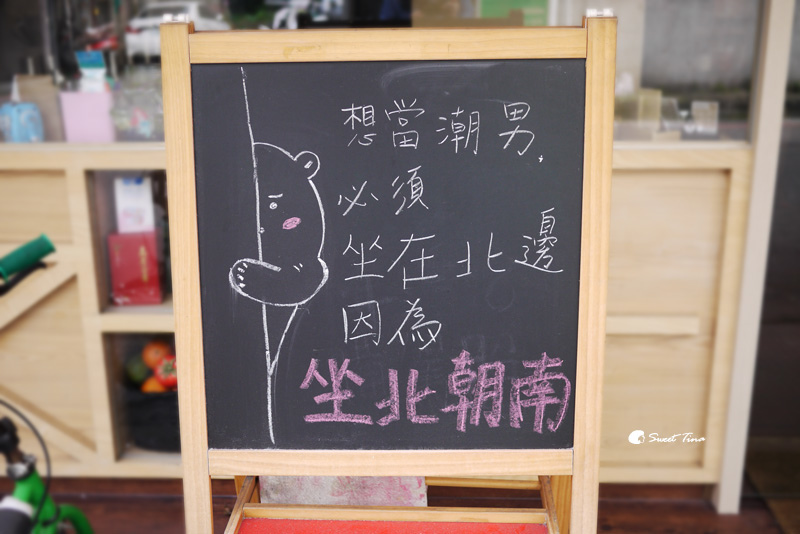 想當潮男.
必須
坐在北邊
因為
坐北朝南
Sweet Tina